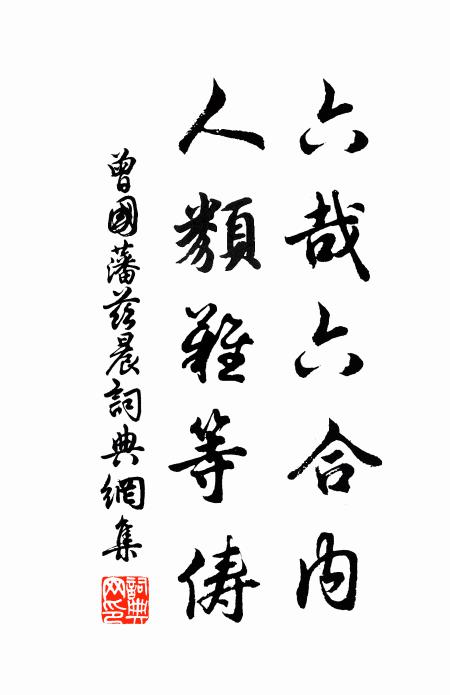 六哉六合内
人類難等儔
曾國藩茲晨詞典網集
詞典网印